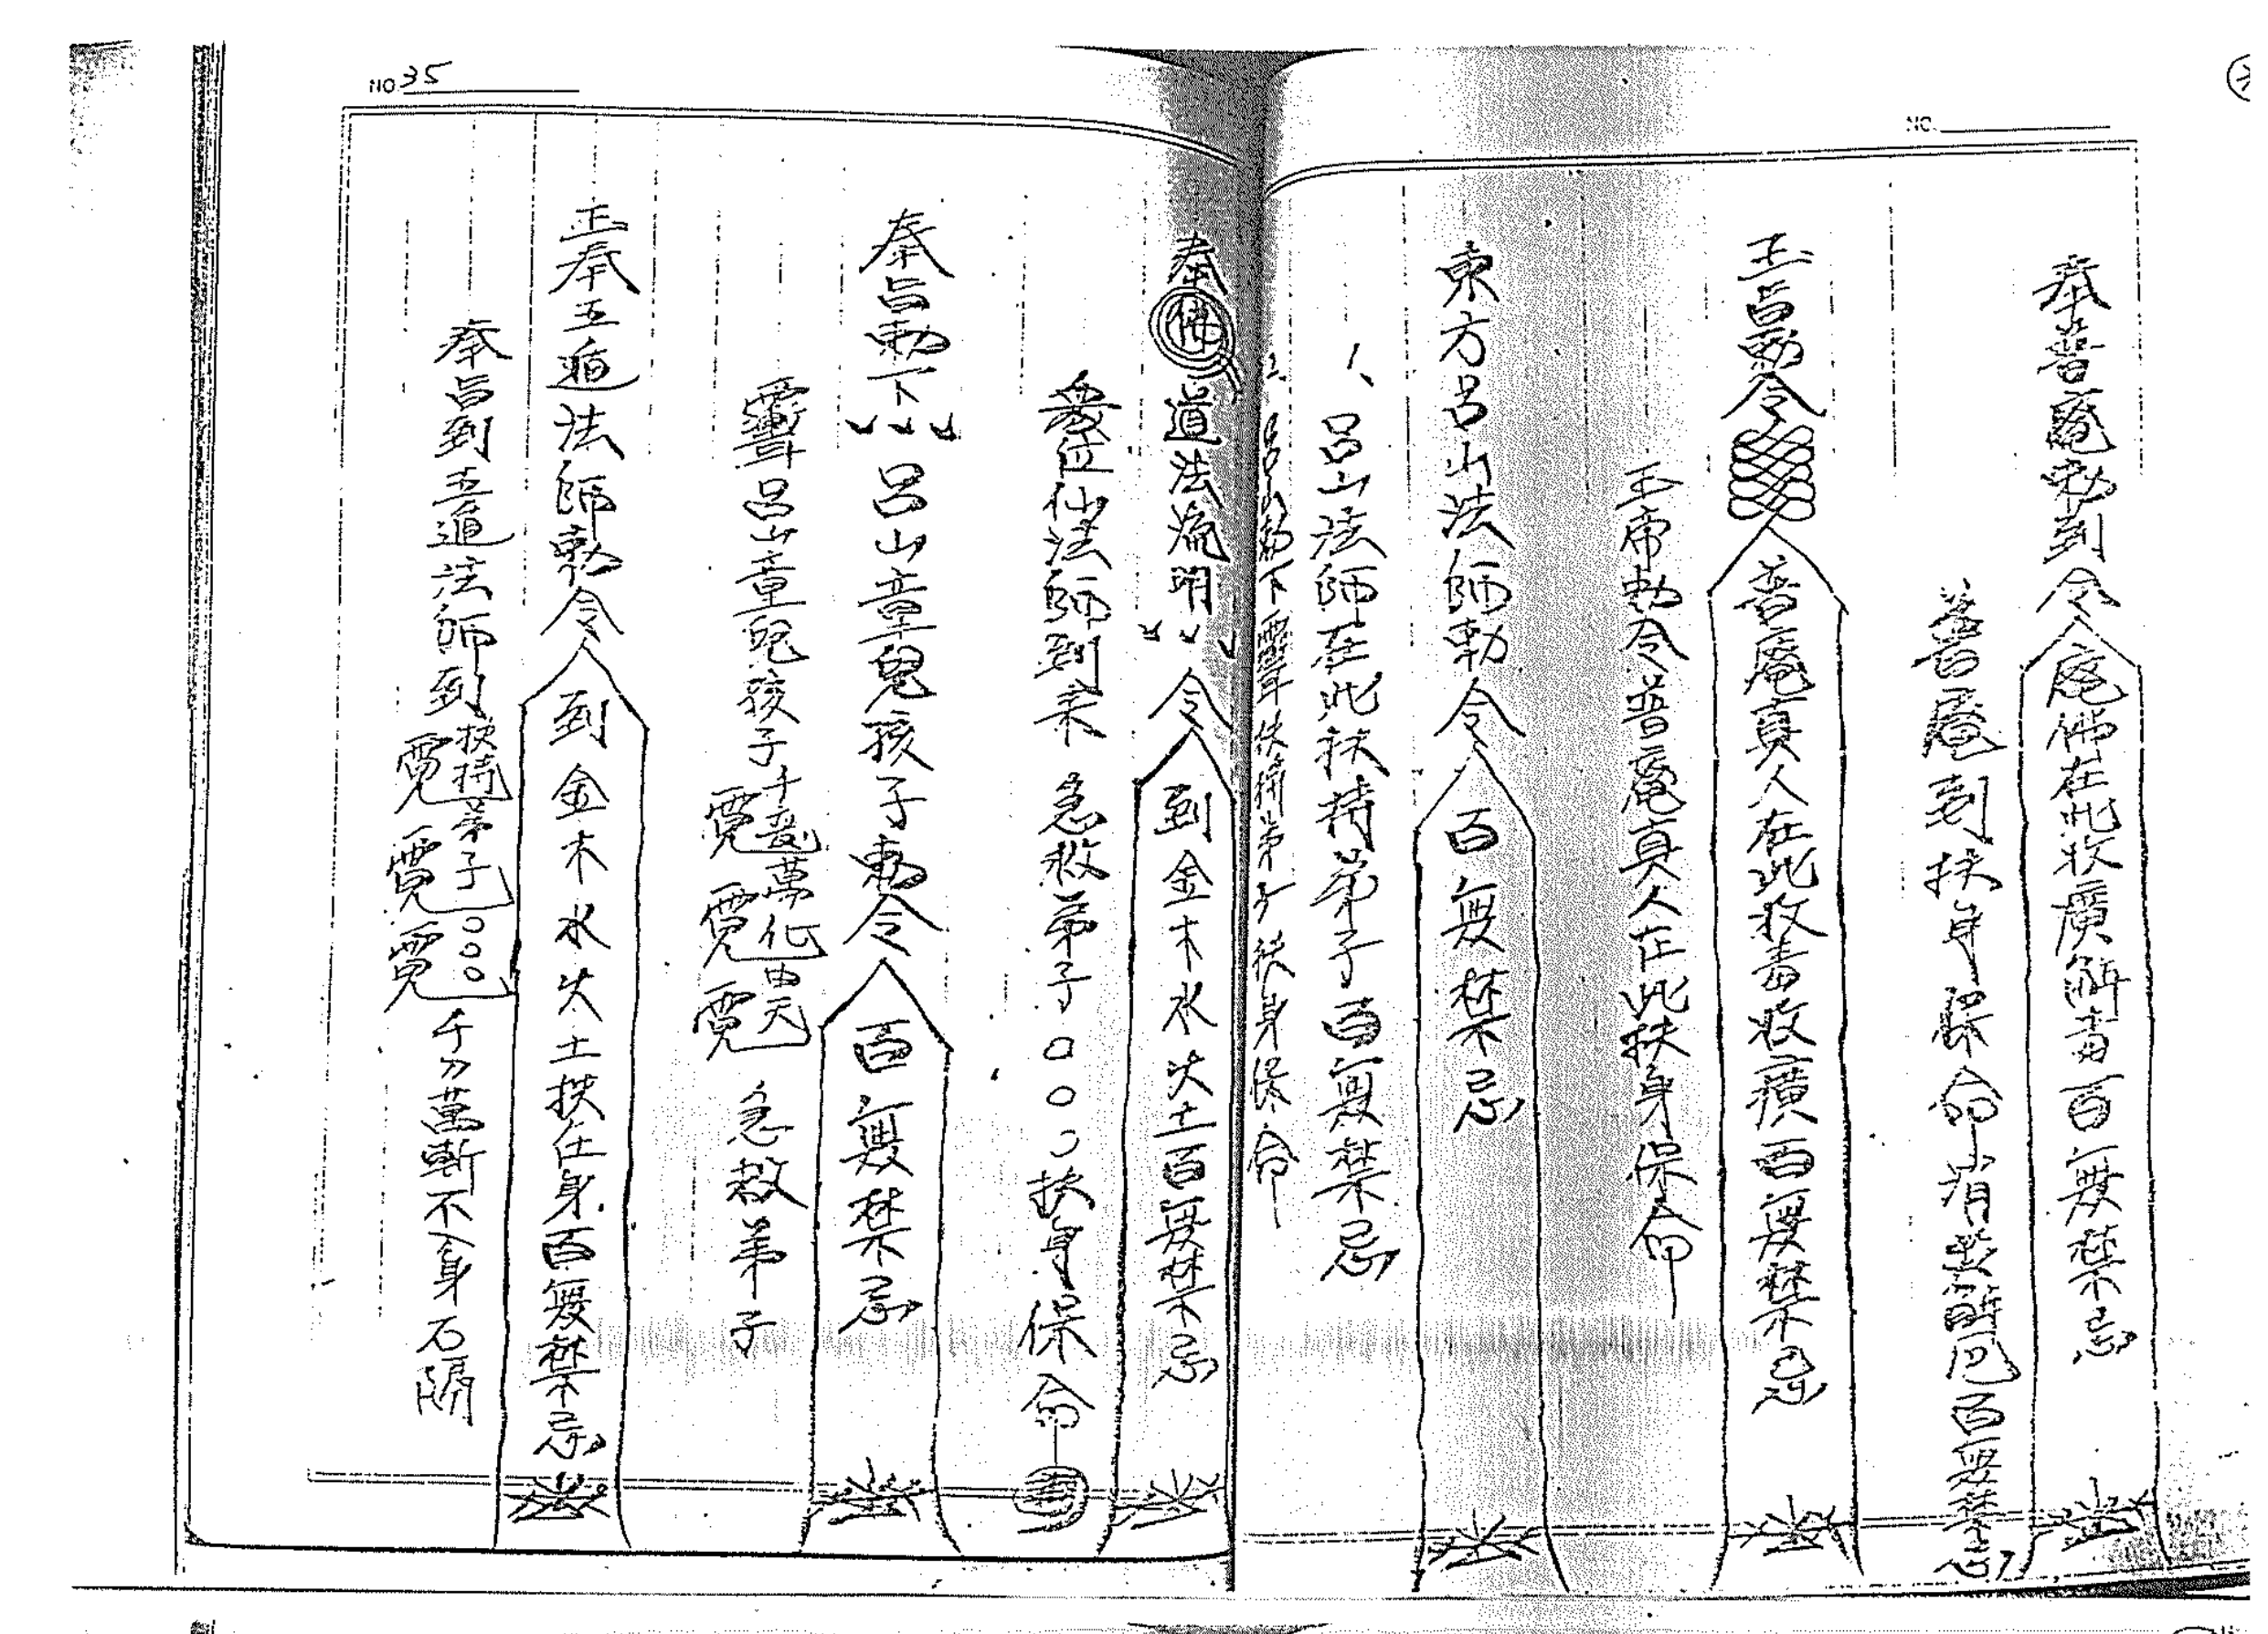 NO.
奉普庵勅到令庵佛在此收癀解毒百無禁忌
普庵到扶身保命消災解厄百無禁忌
玉旨勅令普庵真人在此收毒收癀百無禁忌
玉帝勅令普庵真人在此扶身保命
東方呂山法師勅令百無禁忌
1、呂山法師在此扶持弟子百無禁忌
2、呂山勅下靈扶持弟子扶身保命
NO 35
奉佛道法流明令到金木水火土百無禁忌
眾位仙法師到來急救弟子○○○扶身保命
奉旨勅下呂山童児孩子勅令百無禁忌
呂山童児孩子千變萬化急救弟子
玉奉五遁法師勅令到金木水火土扶在身百無禁忌
奉旨到五遁法師到扶持弟子○○○千刀萬斬不入身石隔